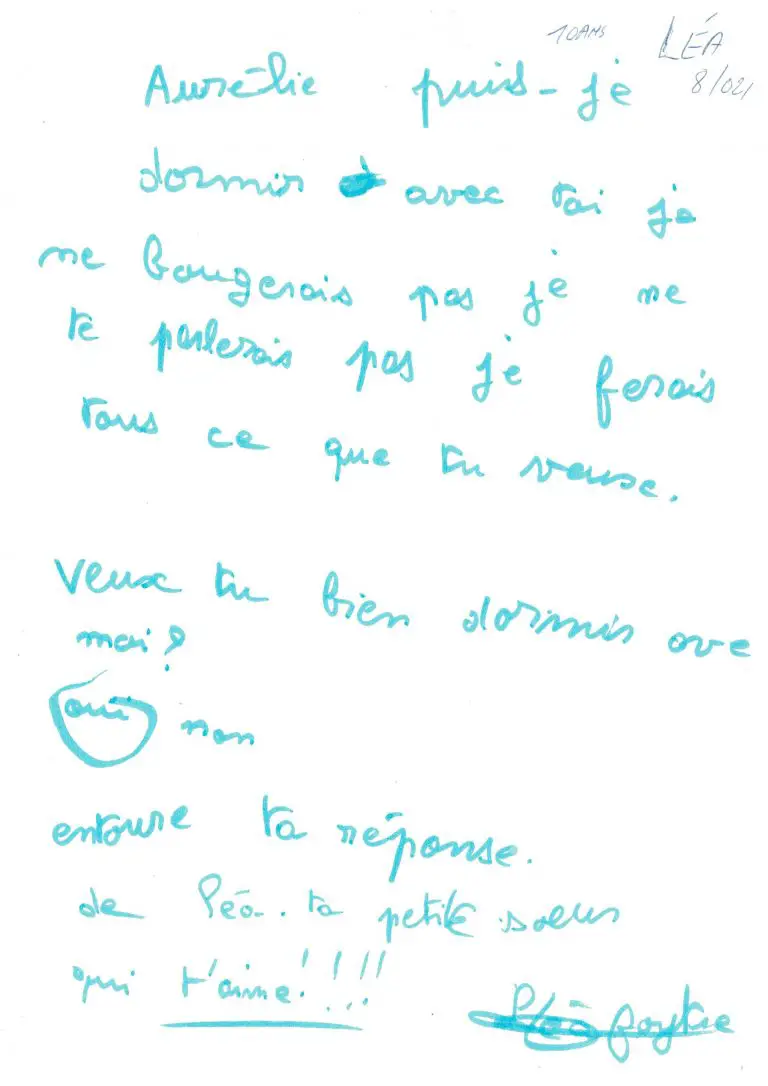 10 ANS LÉA
8/021
Aurélie puis-je
dormir avec toi je
ne bougerais pas je ne
te parlerais pas je ferais
tous ce que tu veuse.
Veux tu bien dormir ave
moi?
oui non
entoure ta réponse.
de Léa. ta petite soeur
qui t'aime!!!!!!